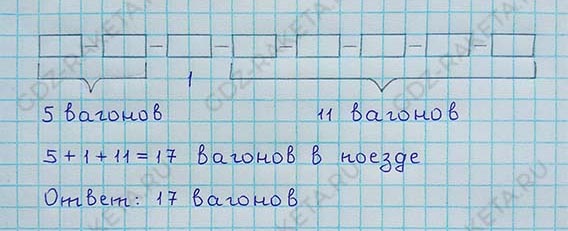 1
5 вагонов 11 вагонов
5+1+11=17 вагонов в поезде
Ответ: 17 вагонов
GDZ-RAKETA.RU